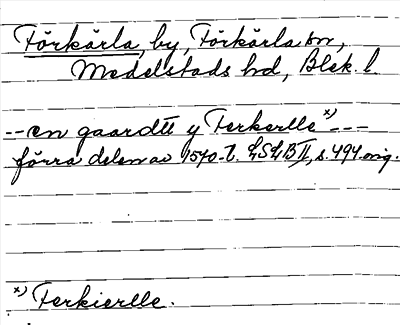 Förkärla, by, Förkärla sn,
Medelstads hd, Blek. l.
--en gaardtt y Ferkerlle x) ---
förra delen av 1570-t. LSLB II, s. 494. orig.
x) Ferkierlle.